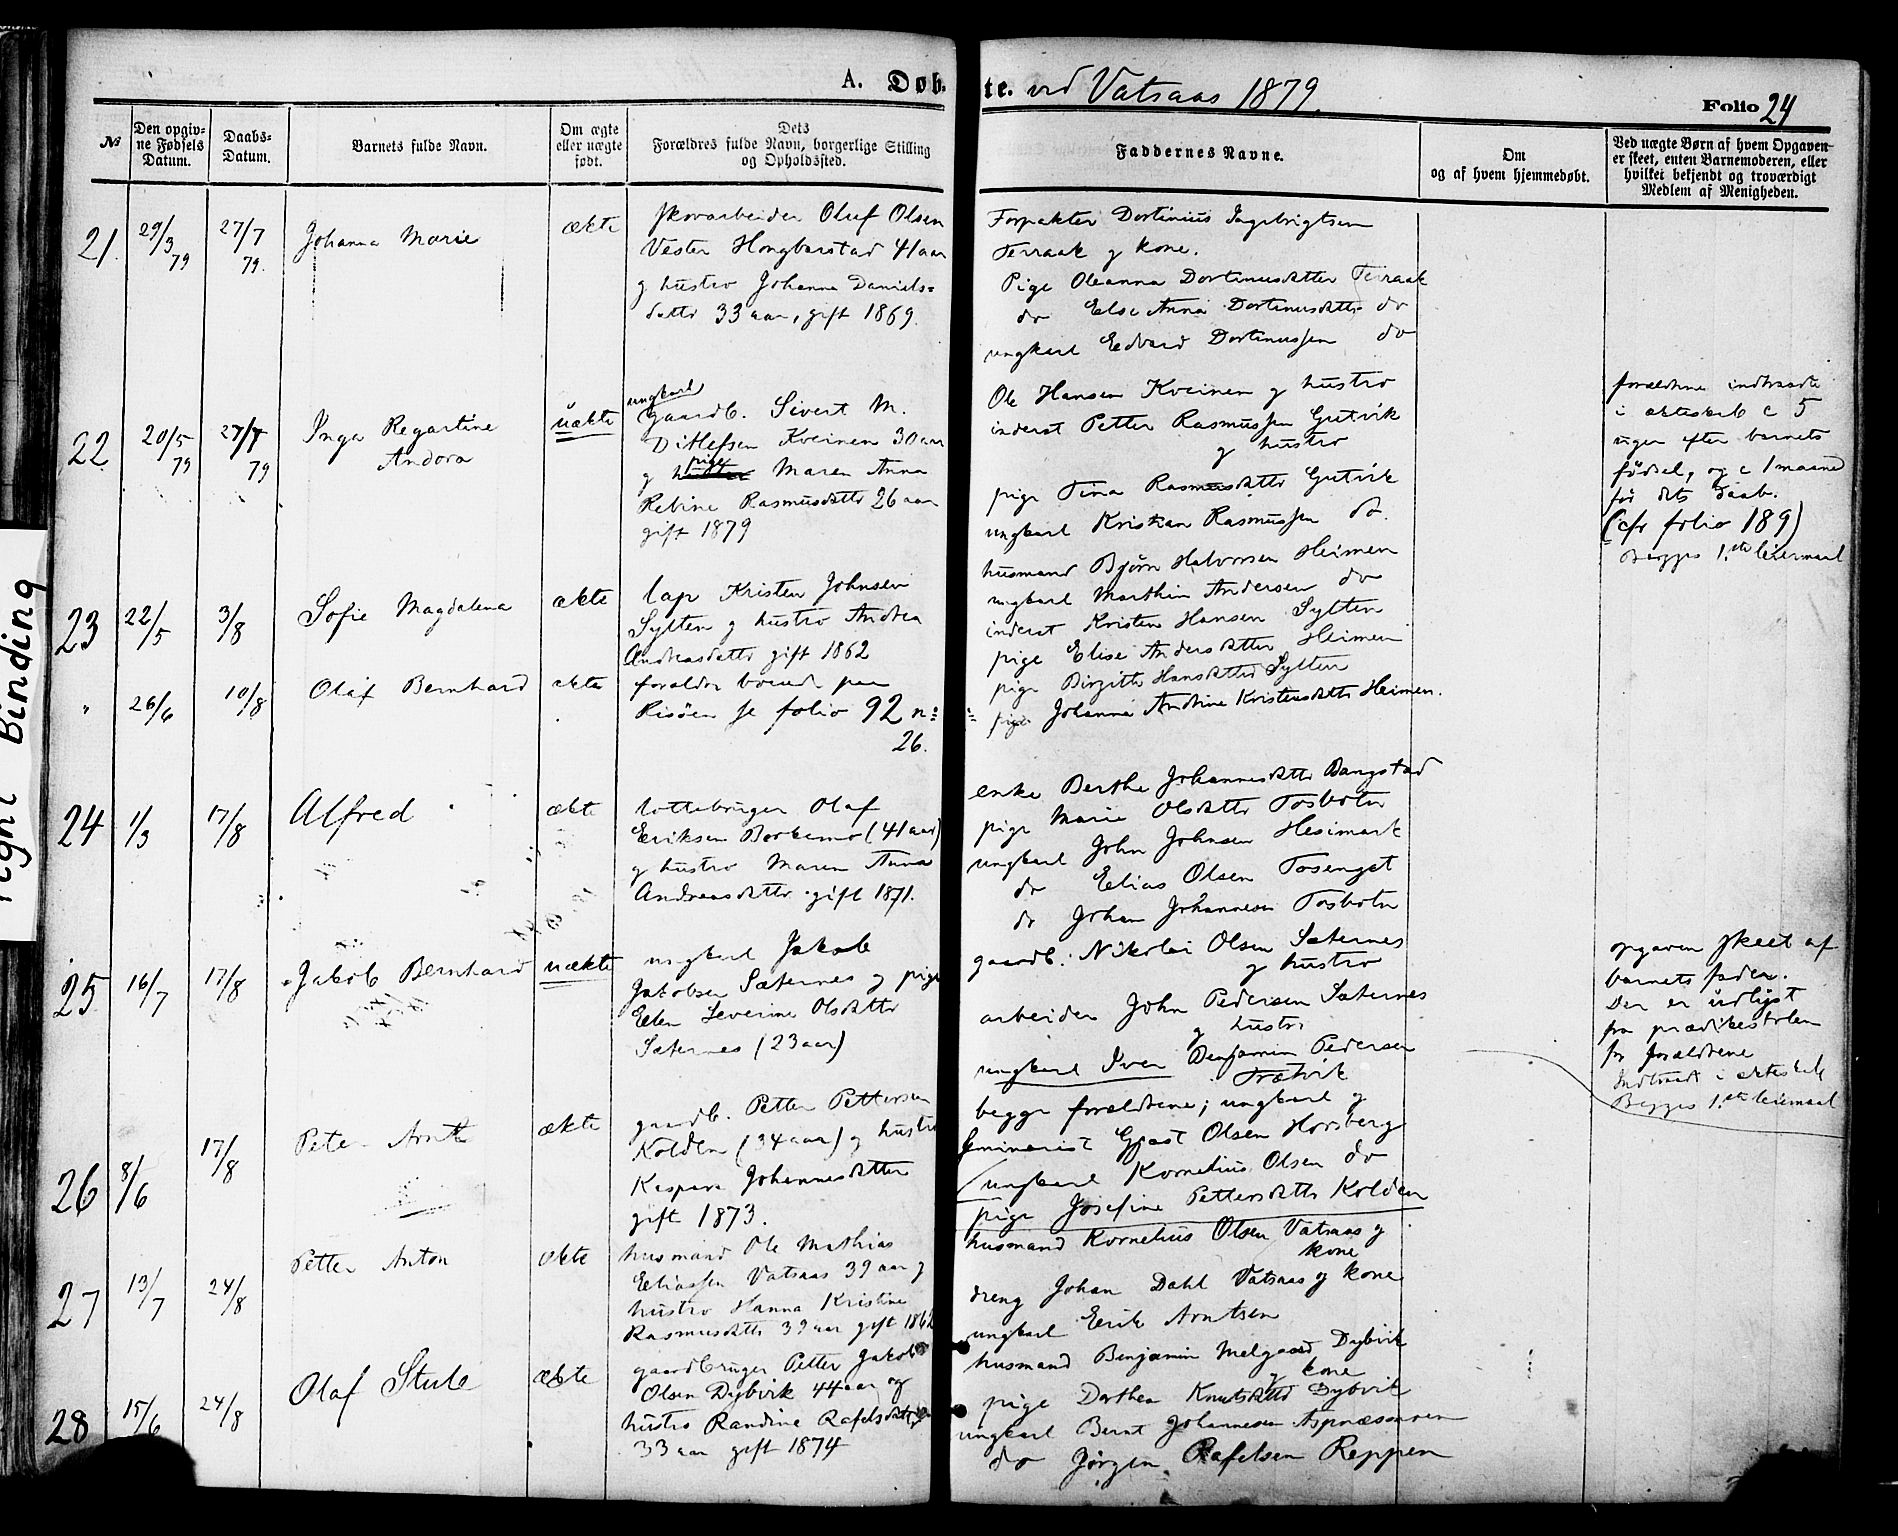 A. Døb-
te. ved Vatsaas 1879.
Folio 24
№
Den opgiv-
ne Fødsels
Datum.
Daabs-
Datum.
Barnets fulde Navn.
Om ægte
eller uægte
født.
Dets
Forældres fulde Navn, borgerlige Stilling
og Opholdssted.
Faddernes Navne.
Om
og af hvem hjemmedøbt.
Ved uægte Børn af hvem Opgaven
er skeet, enten Barnemoderen, eller
hvilket bekjendt og troværdigt
Medlem af Menigheden.
21.
29/3
79
27/7
79.
Johanna Marie
ækte
skovarbeider Oluf Olsen
Vester Hongbarstad 41 aar
g hustro Johanna Daniels=
datter 33 aar, gift 1869.
Forpakter Dortinius Ingebrigtsen
Terraak g kone.
Pige Oleanna Dortinusdatter Terraak
do Else Anna Dortinusdatter do
ungkarl Edvard Dortinussen do
22
20/5
79
27/7
79
Inga Regartine
Andora
uækte
ungkarl
gaardb. Sivert M.
Ditlefsen Kveinen 30 aar
g pige Maren Anna
Rebine Rasmusdatter 26 aar
gift 1879
Ole Hansen Kveinen g hustro
inderst Petter Rasmussen Gutvik
g hustro
pige Tina Rasmusdatter Gutvik
ungkarl Kristian Rasmussen do.
forældrene indtraadte
i ækteskab c 5
uger efter barnets
fødsel, og c 1 maaned
før dets daab.
(cfr folio 189)
Begges 1.ste leiermaal
23
22/5
3/8
Sofie Magdalena
ækte
lap Kristen Johnsen
Sylten g hustro Andrea
Andreasdatter gift 1862
husmand Bjørn Halvorsen Heimen
ungkarl Marthin Andersen do
inderst Kristen Hansen Sylten
pige Elise Andersdatter Heimen
pige Birgitte Hansdatter Sylten
pige Johanna Andrine Kristensdatter Heimen.
"
26/6
10/8
Olaf Bernhard
ækte
forældre boende paa
Risøen se folio 92 n:
26.
24
1/3
17/8
Alfred
ækte
lottebruger Olaf
Eriksen Børkemo (41 aar)
g hustro Maren Anna
Andreasdatter gift 1871.
enke Berthe Johannesdatter Bangstad
pige Marie Olsdatter Tosbotn
ungkarl John Johnsen Hesimark
do Elias Olsen Tosenget
do Johan Johannesen Tosbotn
25
16/7
17/8
Jakob Bernhard
uækte
ungkarl Jakob
Jakobsen Sæternes g pige
Ellen Severine Olsdatter
Sæternes (23 aar)
gaardb. Nikolai Olsen Sæternes
g hustro
arbeider John Pedersen Sæternes
g hustro
ungkarl Iver Benjamin Pedersen
Trætvik
opgaven skeet af
barnets fader.
Der er udlyst
fra prædikestolen
for forældrene
Indtraadt i ækteskab
Begges 1.ste leiermaal
26
8/6
17/8
Peter Arnt
ækte
gaardb. Petter Pettersen
Kolden (34 aar) g hustro
Kaspara Johannesdatter
gift 1873.
begge forældrene; ungkarl g
seminarist Gjest Olsen Horsberg
ungkarl Kornelius Olsen do
pige Josefine Pettersdatter Kolden
27
13/7
24/8
Petter Anton
ækte
husmand Ole Mathias
Eliassen Vatsaas 39 aar g
hustro Hanna Kristine
Rasmusdatter 39 aar gift 1862
husmand Kornelius Olsen Vatsaas g
kone
dreng Johan Dahl Vatsaas g kone
ungkarl Erik Arntsen
28
15/6
24/8
Olaf Stule
ækte
gaardbruger Petter Jakob
Olsen Dybvik 44 aar og
hustro Randine Rafelsdatter
33 aar gift 1874
husmand Benjamin Melgaard Dybvik
g kone
pige Dorthea Knutsdatter Dybvik
ungkarl Bernt Johannesen Aspnæsmoen
do Jørgen Rafelsen Reppen
Tight Binding